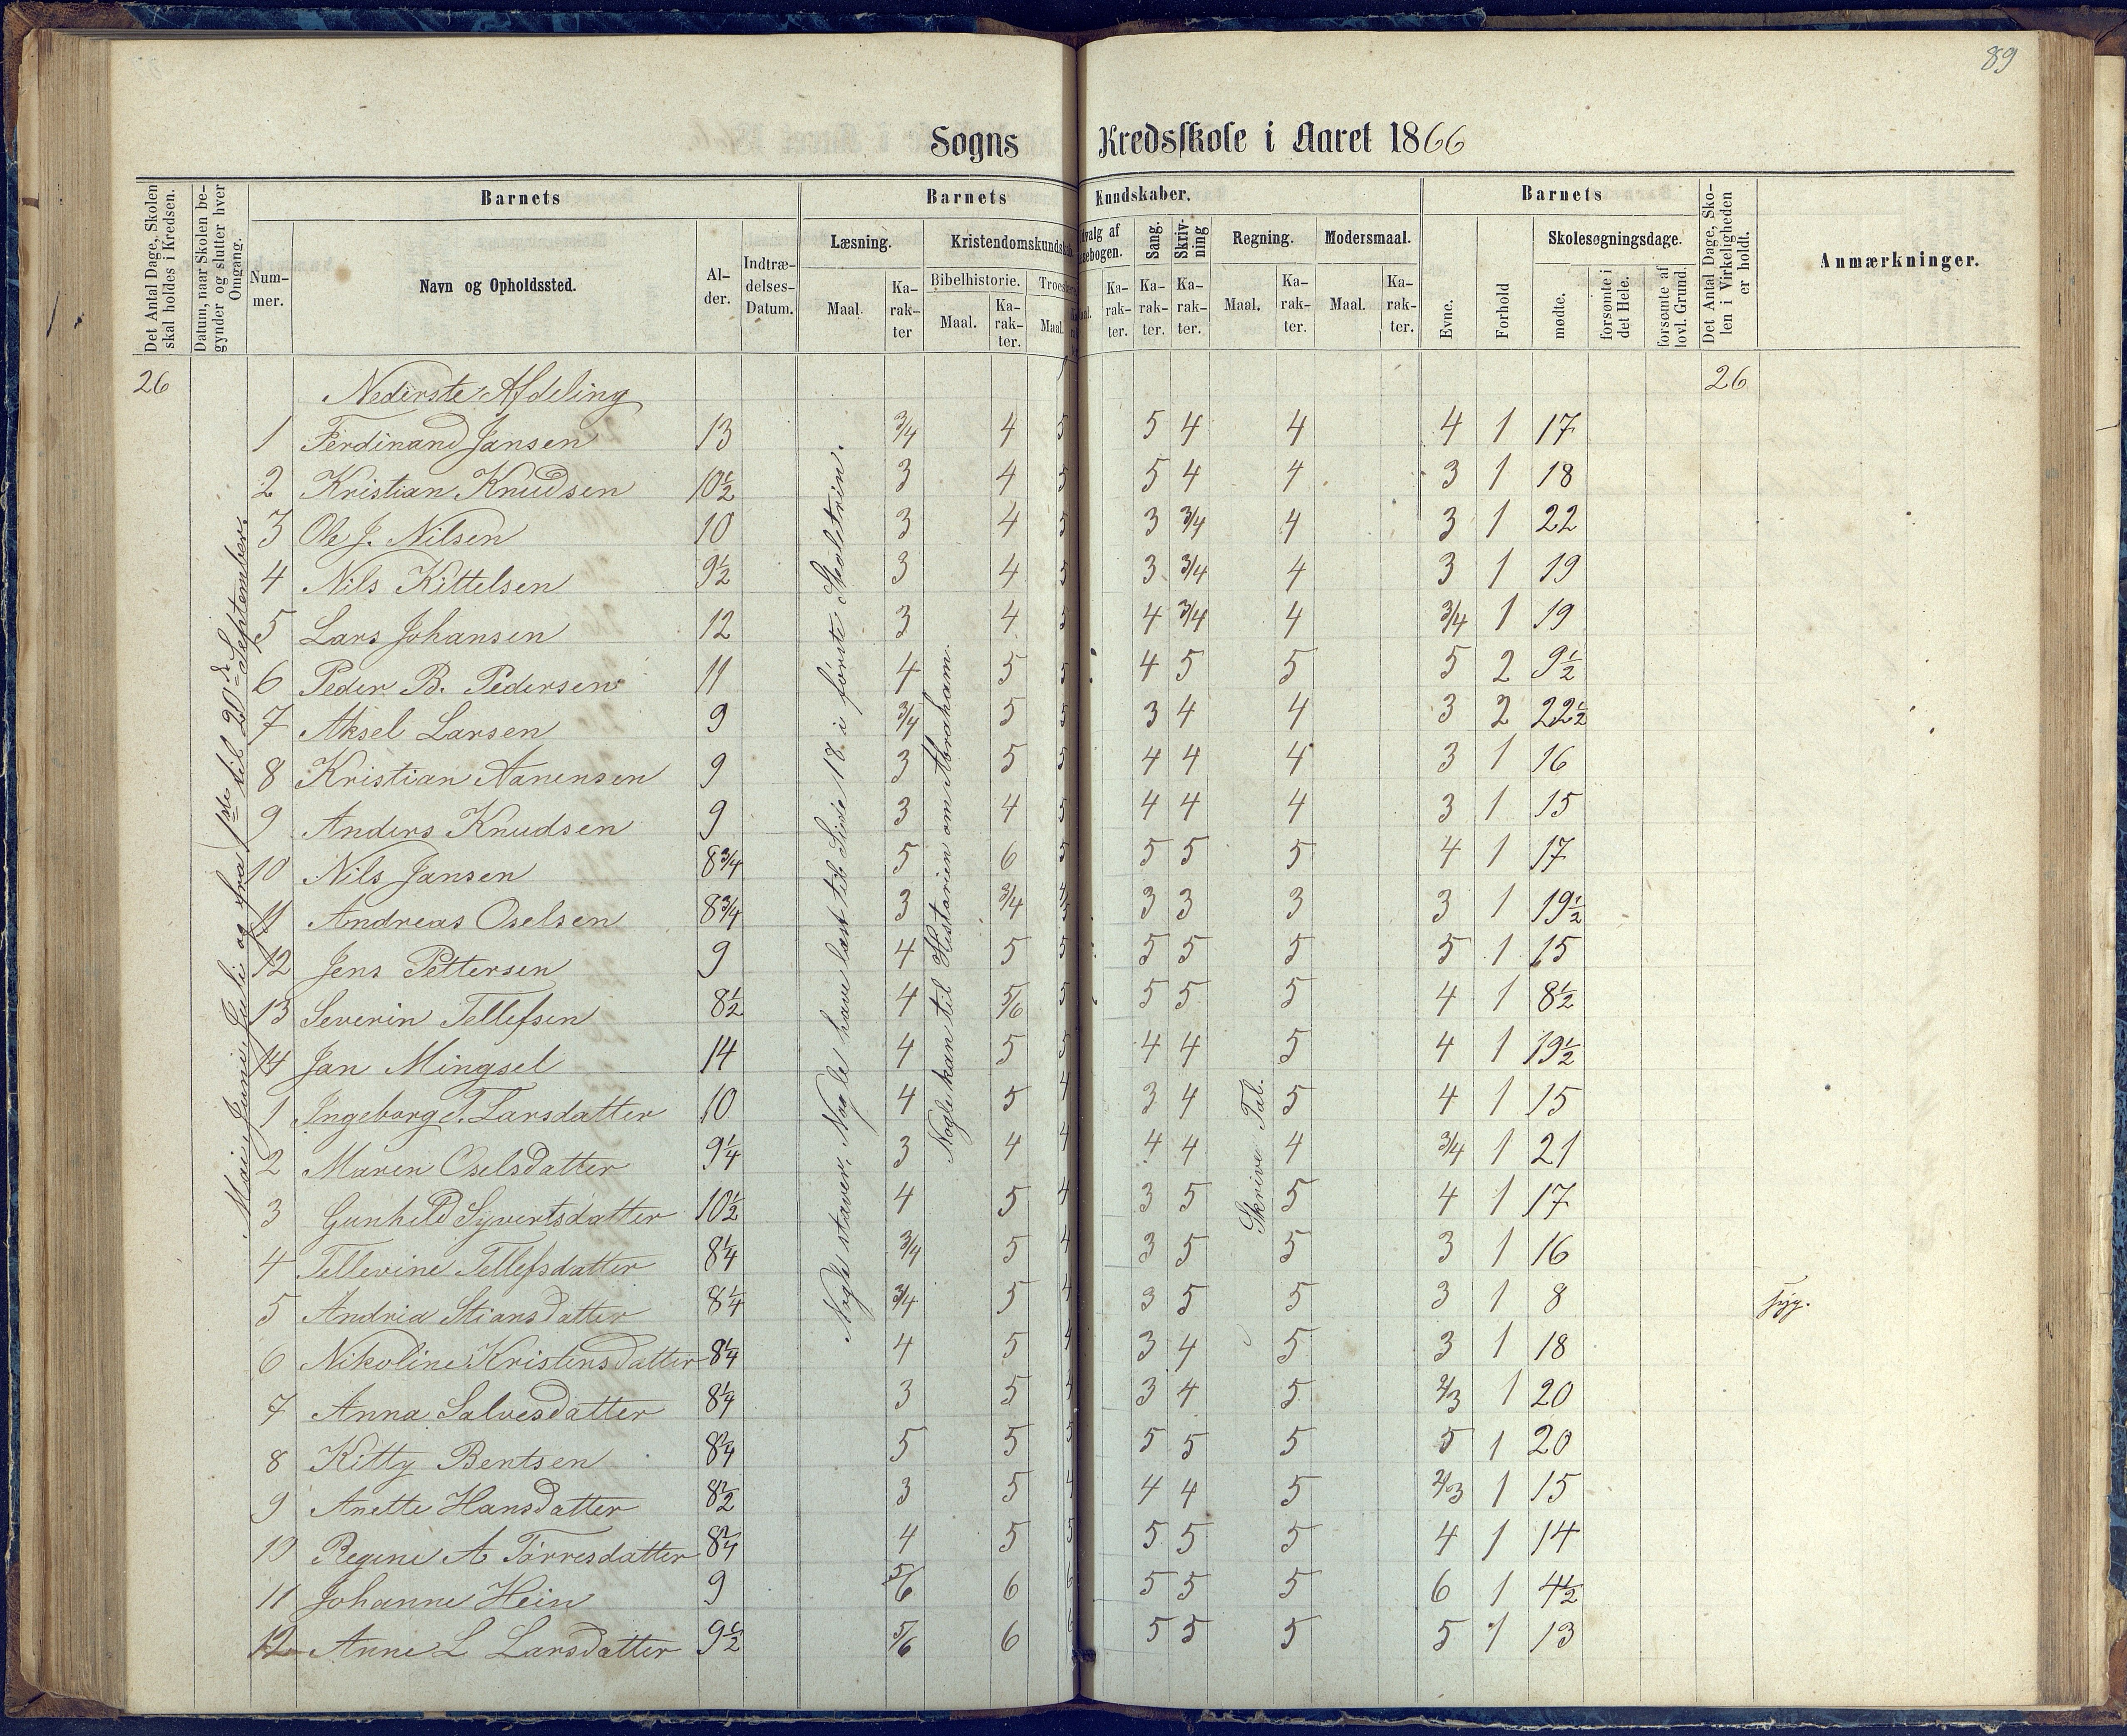 89
Sogns Kredsskole i Aaret 1866
Det Antal Dage, Skolen skal holdes i Kredsen.
Datum, naar Skolen begynder og slutter hver Omgang.
Barnets
Nummer.
Navn og Opholdssted.
Alder.
Indtrædelses-Datum.
Barnets Kundskaber.
Læsning.
Maal.
Karakter
Kristendomskundskab.
Bibelhistorie.
Maal.
Karakter.
Troes
Maal.
dvalg af
sebogen.
Karakter.
Sang.
Karakter.
Skrivning
Karakter.
Regning.
Maal.
Karakter.
Modersmaal.
Maal.
Karakter.
Barnets
Evne.
Forhold
Skolesøgningsdage.
mødte.
forsømte i det Hele.
forsømte af lovl. Grund.
Det Antal Dage, Skolen i Virkeligheden er holdt.
Anmærkninger.
26 Nederste Afdeling 26
1 Ferdinand Jansen 13 3/4 4 5 5 4 4 4 1 17
2 Kristian Knudsen 10½ 3 4 5 5 4 4 3 1 18
3 Ole J. Nilsen 10 3 4 5 3 3/4 4 3 1 22
4 Nils Kittelsen 9½ 3 4 5 3 3/4 4 3 1 19
5 Lars Johansen 12 3 4 5 4 3/4 4 3/4 1 19
6 Peder B. Pedersen 11 4 5 5 4 5 5 5 2 9½
7 Aksel Larsen 9 3/4 5 5 3 4 4 3 2 22½
8 Kristian Aanensen 9 3 5 5 4 4 4 3 1 16
9 Anders Knudsen 9 3 4 5 4 4 4 3 1 15
10 Nils Jansen 8¾ 5 6 5 5 5 5 4 1 17
11 Andreas Oselsen 8¾ 3 3/4 4/5 3 3 3 3 1 19½
12 Jens Pettersen 9 4 5 5 5 5 5 5 1 15
13 Severin Tellefsen 8½ 4 5/6 5 5 5 5 4 1 8½
14 Jan Mingsel 14 4 5 5 4 4 5 4 1 19½
1 Ingeborg Larsdatter 10 4 5 4 3 4 5 4 1 15
2 Maren Oselsdatter 9¼ 3 4 4 4 4 4 3/4 1 21
3 Gunhild Syvertsdatter 10½ 4 5 4 3 5 5 4 1 17
4 Tellevine Tellefsdatter 8¼ 3/4 5 4 3 5 5 3 1 16
5 Andrea Stiansdatter 8¼ 3/4 5 4 3 5 5 3 1 8 syg.
6 Nikoline Kristensdatter 8¼ 4 5 4 3 4 5 3 1 18
7 Anna Salvesdatter 8¼ 3 5 4 3 4 5 2/3 1 20
8 Kitty Bentsen 8¼ 5 5 5 5 5 5 5 1 20
9 Anette Hansdatter 8½ 3 5 4 4 4 5 2/3 1 15
10 Regine A Tørresdatter 8¼ 4 5 5 5 5 5 4 1 14
11 Johanne Hein 9 5/6 6 6 5 5 5 6 1 4½
12 Anne L Larsdatter 9½ 5/6 6 6 5 5 5 5 1 13
Mai, Juni, Juli og fra 1ste til 20de September.
Nogle staver, Nogle have læst til Side 18 i første Skoletrin.
Nogle kan til Historien om Abraham.
Skrive Tal.